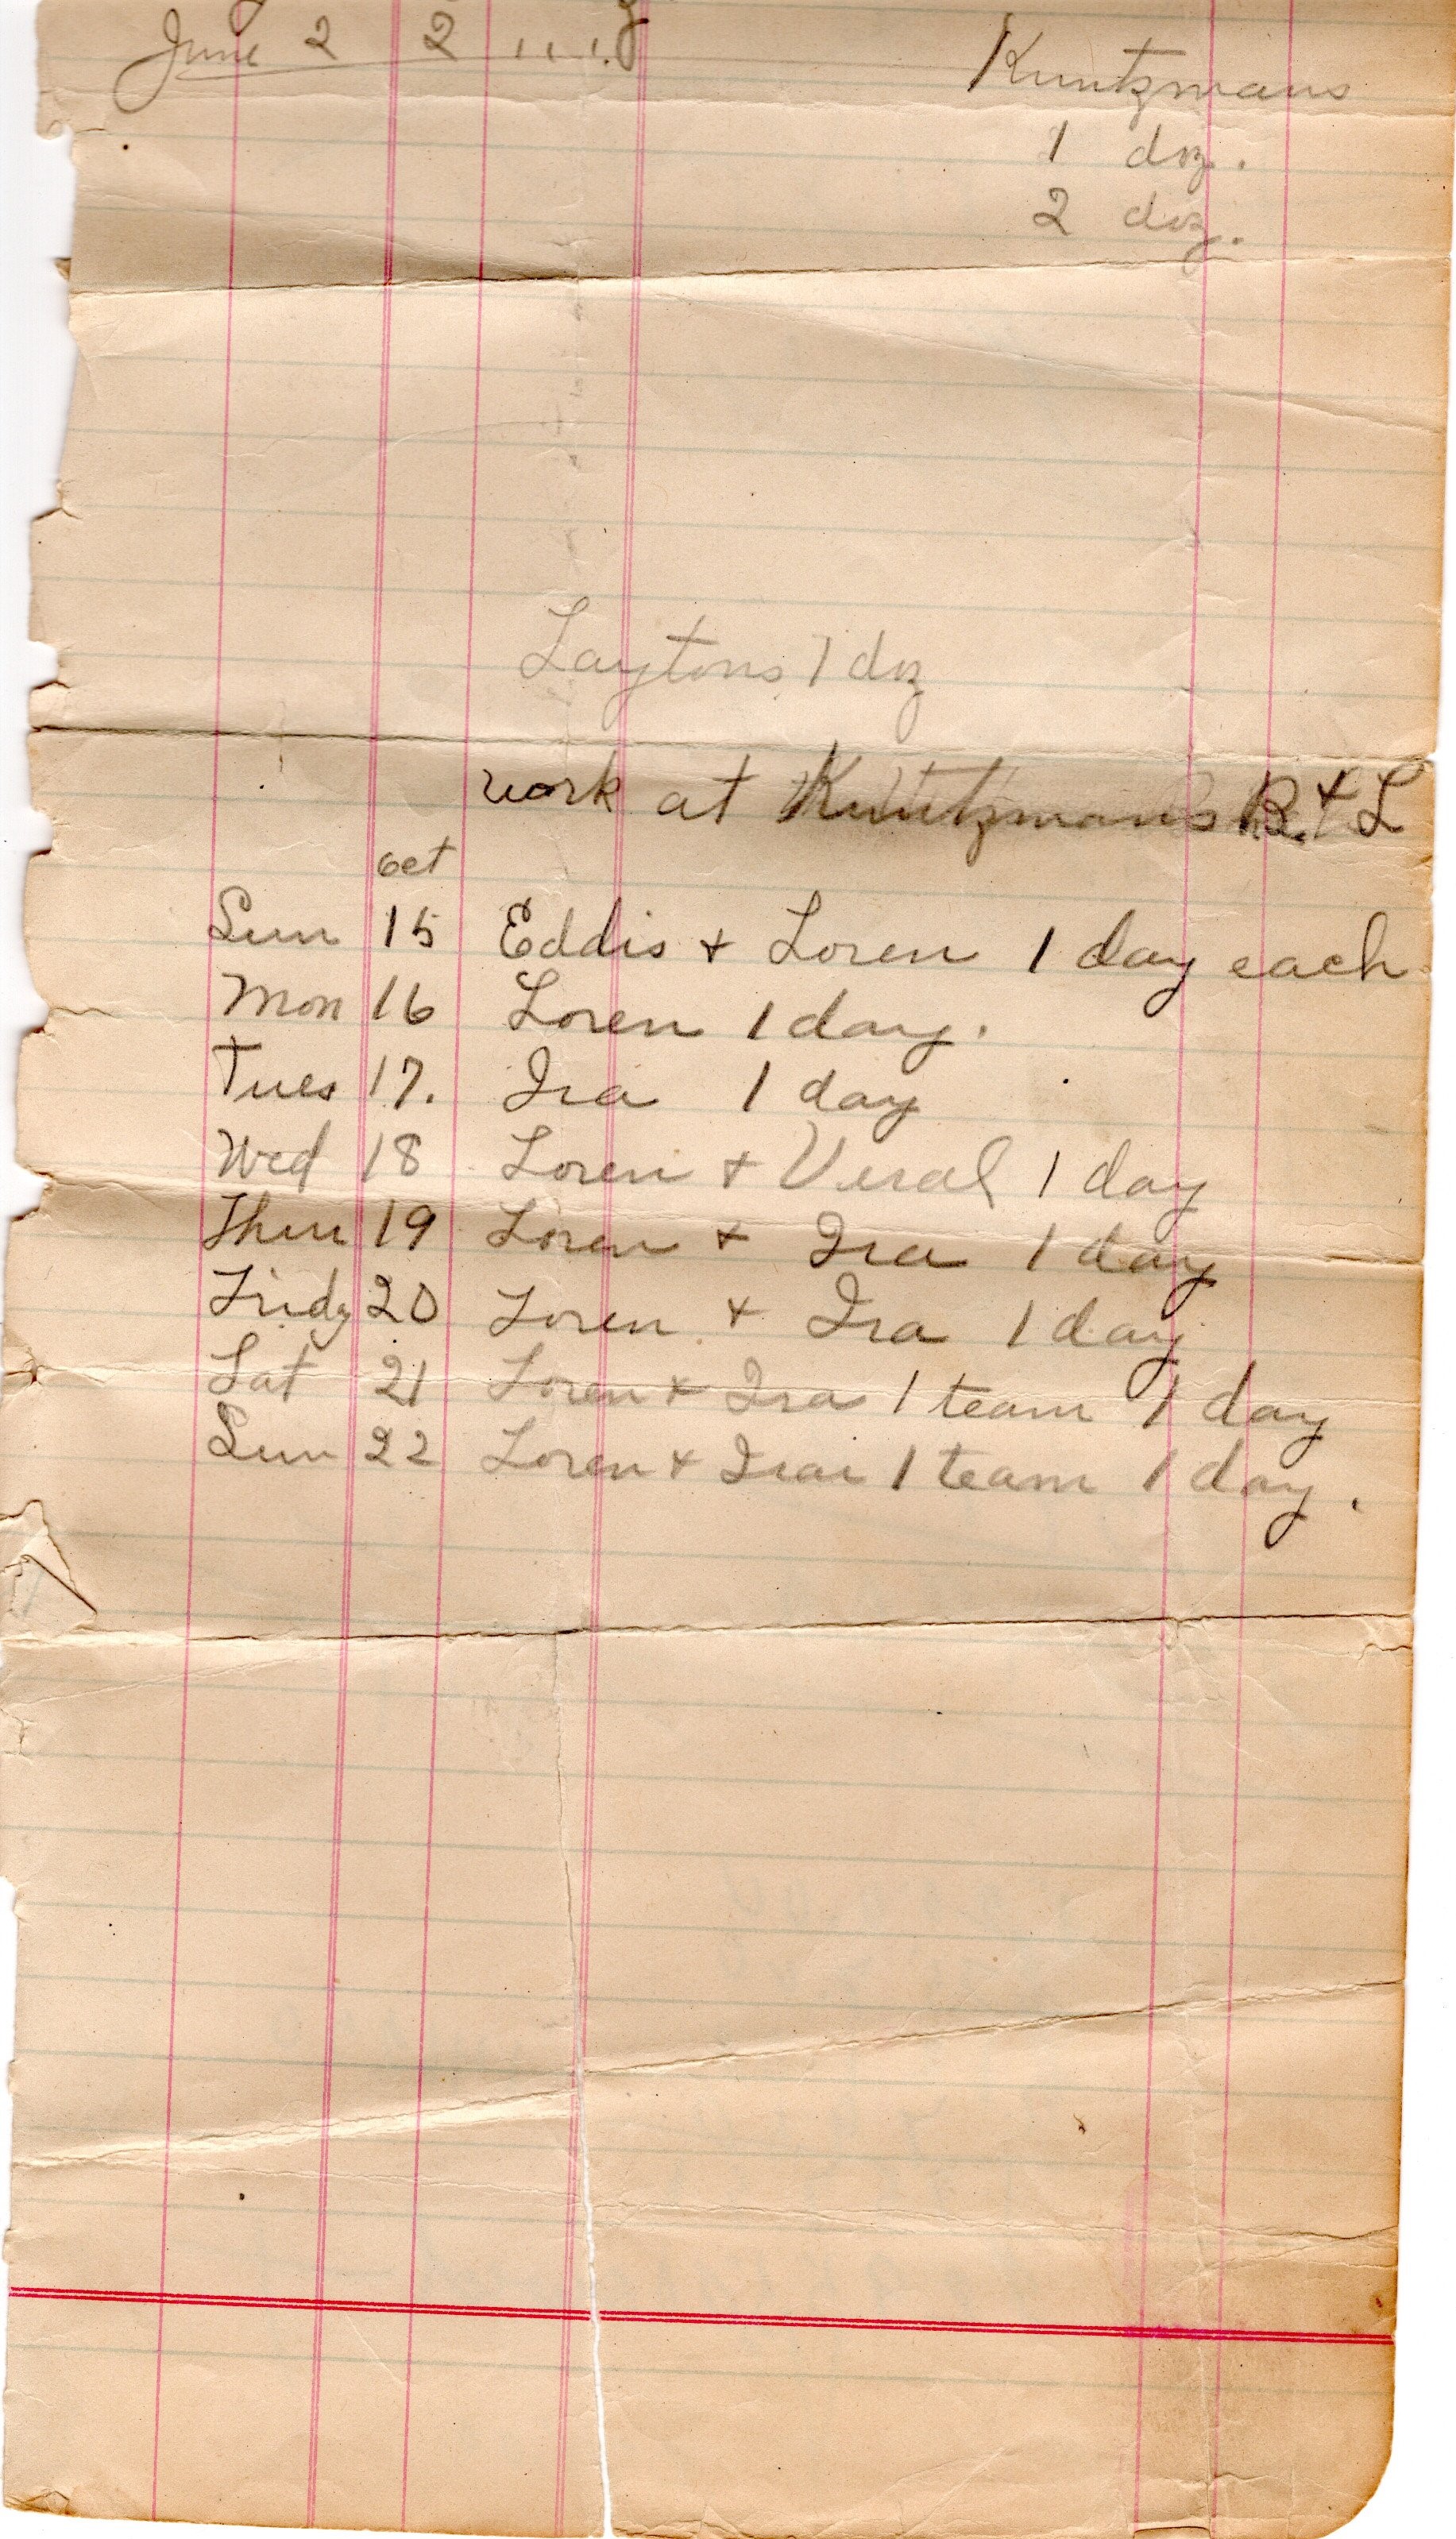 June 2 2 " "
Kuntzmans
1 doz.
2 doz.
Laytons 1 doz
work at Kuntzmans R. + L
oct
Sun 15 Eddis + Loren 1 day each
Mon 16 Loren 1 day.
Tues 17. Ira 1 day
Wed 18 Loren + Veral 1 day
Thur 19 Loren + Ira 1 day
Fridy 20 Loren + Ira 1 day
Sat 21 Loren + Ira 1 team 1 day
Sun 22 Loren + Ira 1 team 1 day.